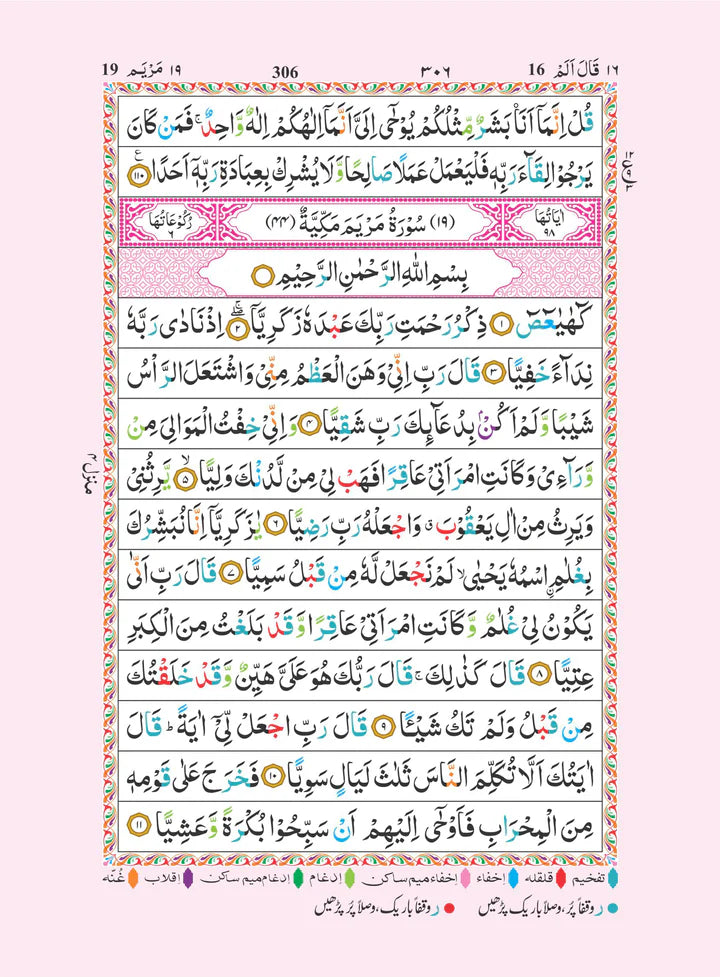 ١٦ قَالَ اَلَمْ 16 ٣٠٦ 306 ١٩ مَرْيَم 19
قُلْ اِنَّمَاۤ اَنَا۠ بَشَرٌ مِّثْلُكُمْ يُوْحٰۤى اِلَیَّ اَنَّمَاۤ اِلٰهُكُمْ اِلٰهٌ وَّاحِدٌ ۚ فَمَنْ كَانَ
يَرْجُوْا لِقَآءَ رَبِّهٖ فَلْيَعْمَلْ عَمَلًا صَالِحًا وَّلَا يُشْرِكْ بِعِبَادَةِ رَبِّهٖۤ اَحَدًا ۧ ١١٠
اٰيَاتُهَا ٩٨ (١٩) سُوْرَةُ مَرْيَمَ مَكِّيَّةٌ (٤٤) رُكُوْعَاتُهَا ٦
بِسْمِ اللّٰهِ الرَّحْمٰنِ الرَّحِيْمِ
كٓهٰيٰعٓصٓ ١ ذِكْرُ رَحْمَتِ رَبِّكَ عَبْدَهٗ زَكَرِيَّا ۖۚ ٢ اِذْ نَادٰى رَبَّهٗ
نِدَآءً خَفِيًّا ٣ قَالَ رَبِّ اِنِّیْ وَهَنَ الْعَظْمُ مِنِّیْ وَاشْتَعَلَ الرَّاْسُ
شَيْبًا وَّلَمْ اَكُنْۢ بِدُعَآئِكَ رَبِّ شَقِيًّا ٤ وَاِنِّیْ خِفْتُ الْمَوَالِیَ مِنْ
وَّرَآءِیْ وَكَانَتِ امْرَاَتِیْ عَاقِرًا فَهَبْ لِیْ مِنْ لَّدُنْكَ وَلِيًّا ۙ ٥ يَّرِثُنِیْ
وَيَرِثُ مِنْ اٰلِ يَعْقُوْبَ ۖ وَاجْعَلْهُ رَبِّ رَضِيًّا ٦ يٰزَكَرِيَّاۤ اِنَّا نُبَشِّرُكَ
بِغُلٰمِ ِ۟اسْمُهٗ يَحْيٰى ۙ لَمْ نَجْعَلْ لَّهٗ مِنْ قَبْلُ سَمِيًّا ٧ قَالَ رَبِّ اَنّٰى
يَكُوْنُ لِیْ غُلٰمٌ وَّكَانَتِ امْرَاَتِیْ عَاقِرًا وَّقَدْ بَلَغْتُ مِنَ الْكِبَرِ
عِتِيًّا ٨ قَالَ كَذٰلِكَ ۚ قَالَ رَبُّكَ هُوَ عَلَیَّ هَيِّنٌ وَّقَدْ خَلَقْتُكَ
مِنْ قَبْلُ وَلَمْ تَكُ شَيْـًٔا ٩ قَالَ رَبِّ اجْعَلْ لِّیْۤ اٰيَةً ؕ قَالَ
اٰيَتُكَ اَلَّا تُكَلِّمَ النَّاسَ ثَلٰثَ لَيَالٍ سَوِيًّا ١٠ فَخَرَجَ عَلٰى قَوْمِهٖ
مِنَ الْمِحْرَابِ فَاَوْحٰۤى اِلَيْهِمْ اَنْ سَبِّحُوْا بُكْرَةً وَّعَشِيًّا ١١
منزل ٤
تفخیم قلقله اِخفاء اِخفاءمیم ساکن اِدغام اِدغام میم ساکن اِقلاب غُنّه
ر وقفاً پُر، وصلاً باریک پڑھیں ر وقفاً باریک، وصلاً پُر پڑھیں